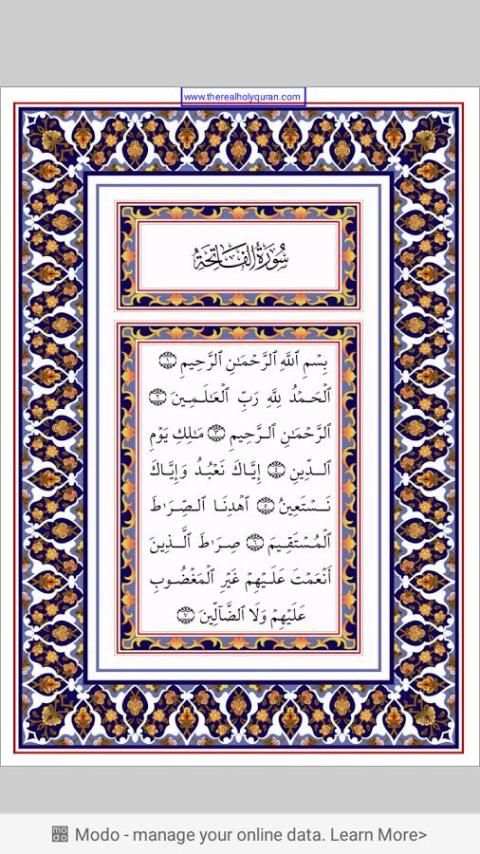 www.therealholyquran.com
سُورَةُ الفَاتِحَةِ
بِسْمِ ٱللَّهِ ٱلرَّحْمَٰنِ ٱلرَّحِيمِ ۝١
ٱلْحَمْدُ لِلَّهِ رَبِّ ٱلْعَـٰلَمِينَ ۝٢
ٱلرَّحْمَٰنِ ٱلرَّحِيمِ ۝٣ مَـٰلِكِ يَوْمِ
ٱلدِّينِ ۝٤ إِيَّاكَ نَعْبُدُ وَإِيَّاكَ
نَسْتَعِينُ ۝٥ ٱهْدِنَا ٱلصِّرَٰطَ
ٱلْمُسْتَقِيمَ ۝٦ صِرَٰطَ ٱلَّذِينَ
أَنْعَمْتَ عَلَيْهِمْ غَيْرِ ٱلْمَغْضُوبِ
عَلَيْهِمْ وَلَا ٱلضَّآلِّينَ ۝٧
modo
Modo - manage your online data. Learn More>